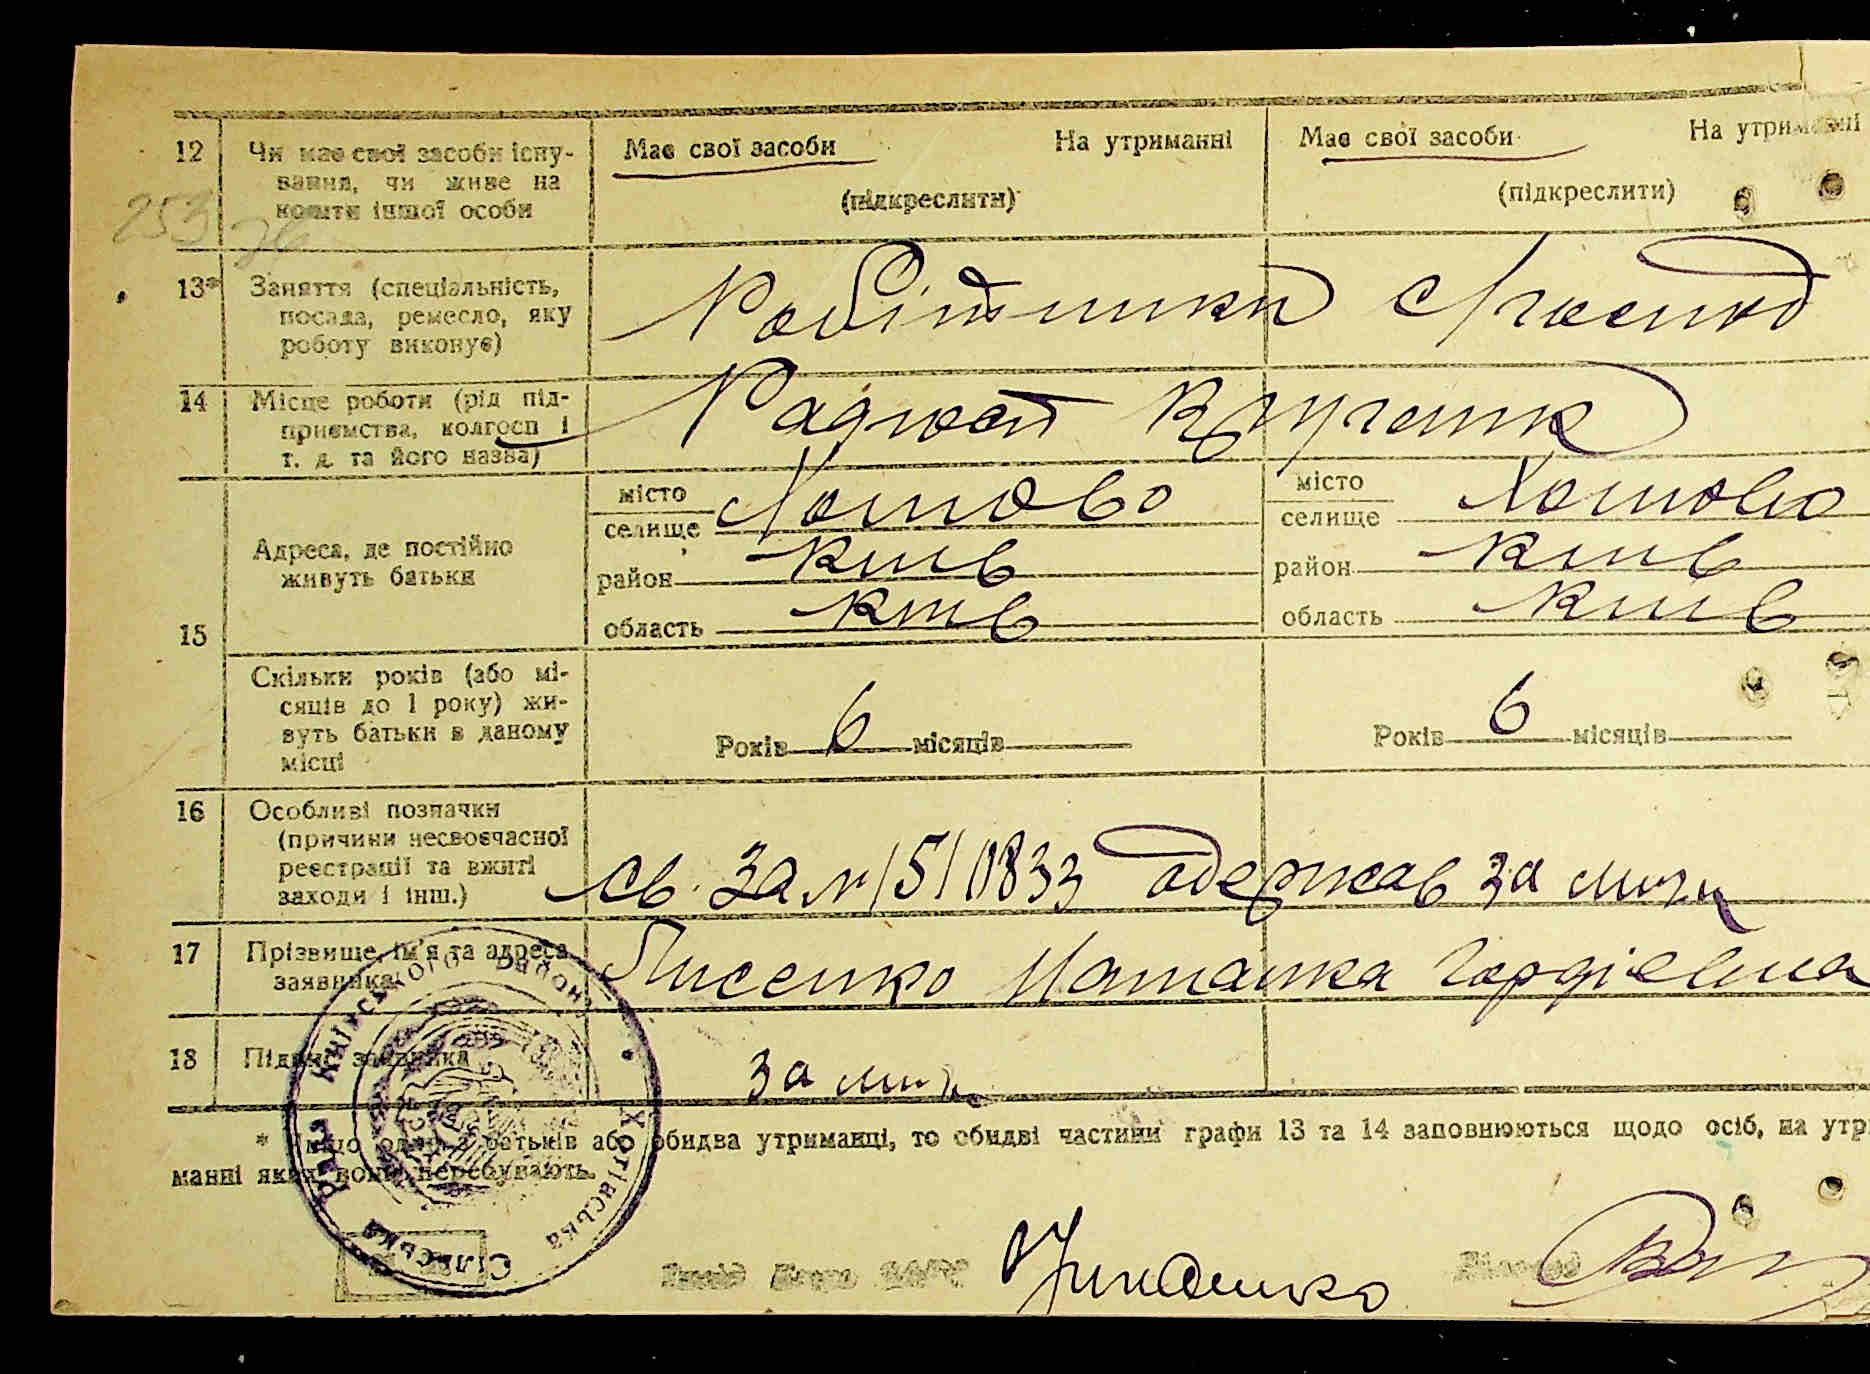 12 Чи має свої засоби існу-
вання, чи живе на
кошти іншої особи
Має свої засоби На утриманні
(підкреслити)
Має свої засоби На утриманні
(підкреслити)
253
13* Заняття (спеціальність,
посада, ремесло, яку
роботу виконує)
Робітники с/господ
14 Місце роботи (рід під-
приємства, колгосп і
т. д. та його назва)
Радгосп
15 Адреса, де постійно
живуть батьки
місто
селище Хотово
район Київ
область Київ
місто
селище Хотово
район Київ
область Київ
Скільки років (або мі-
сяців до 1 року) жи-
вуть батьки в даному
місці
Років 6 місяців
Років 6 місяців
16 Особливі позначки
(причини несвоєчасної
реєстрації та вжиті
заходи і інш.)
св. за №151833 одержав за
17 Прізвище, ім'я та адреса
заявника
Лисенко Наталка Гордієвна
18 Підпис заявника
за
* Якщо один з батьків або обидва утриманці, то обидві частини графи 13 та 14 заповнюються щодо осіб, на утри
манні яких вони перебувають.
Хотівська Сільська Рада Київського району